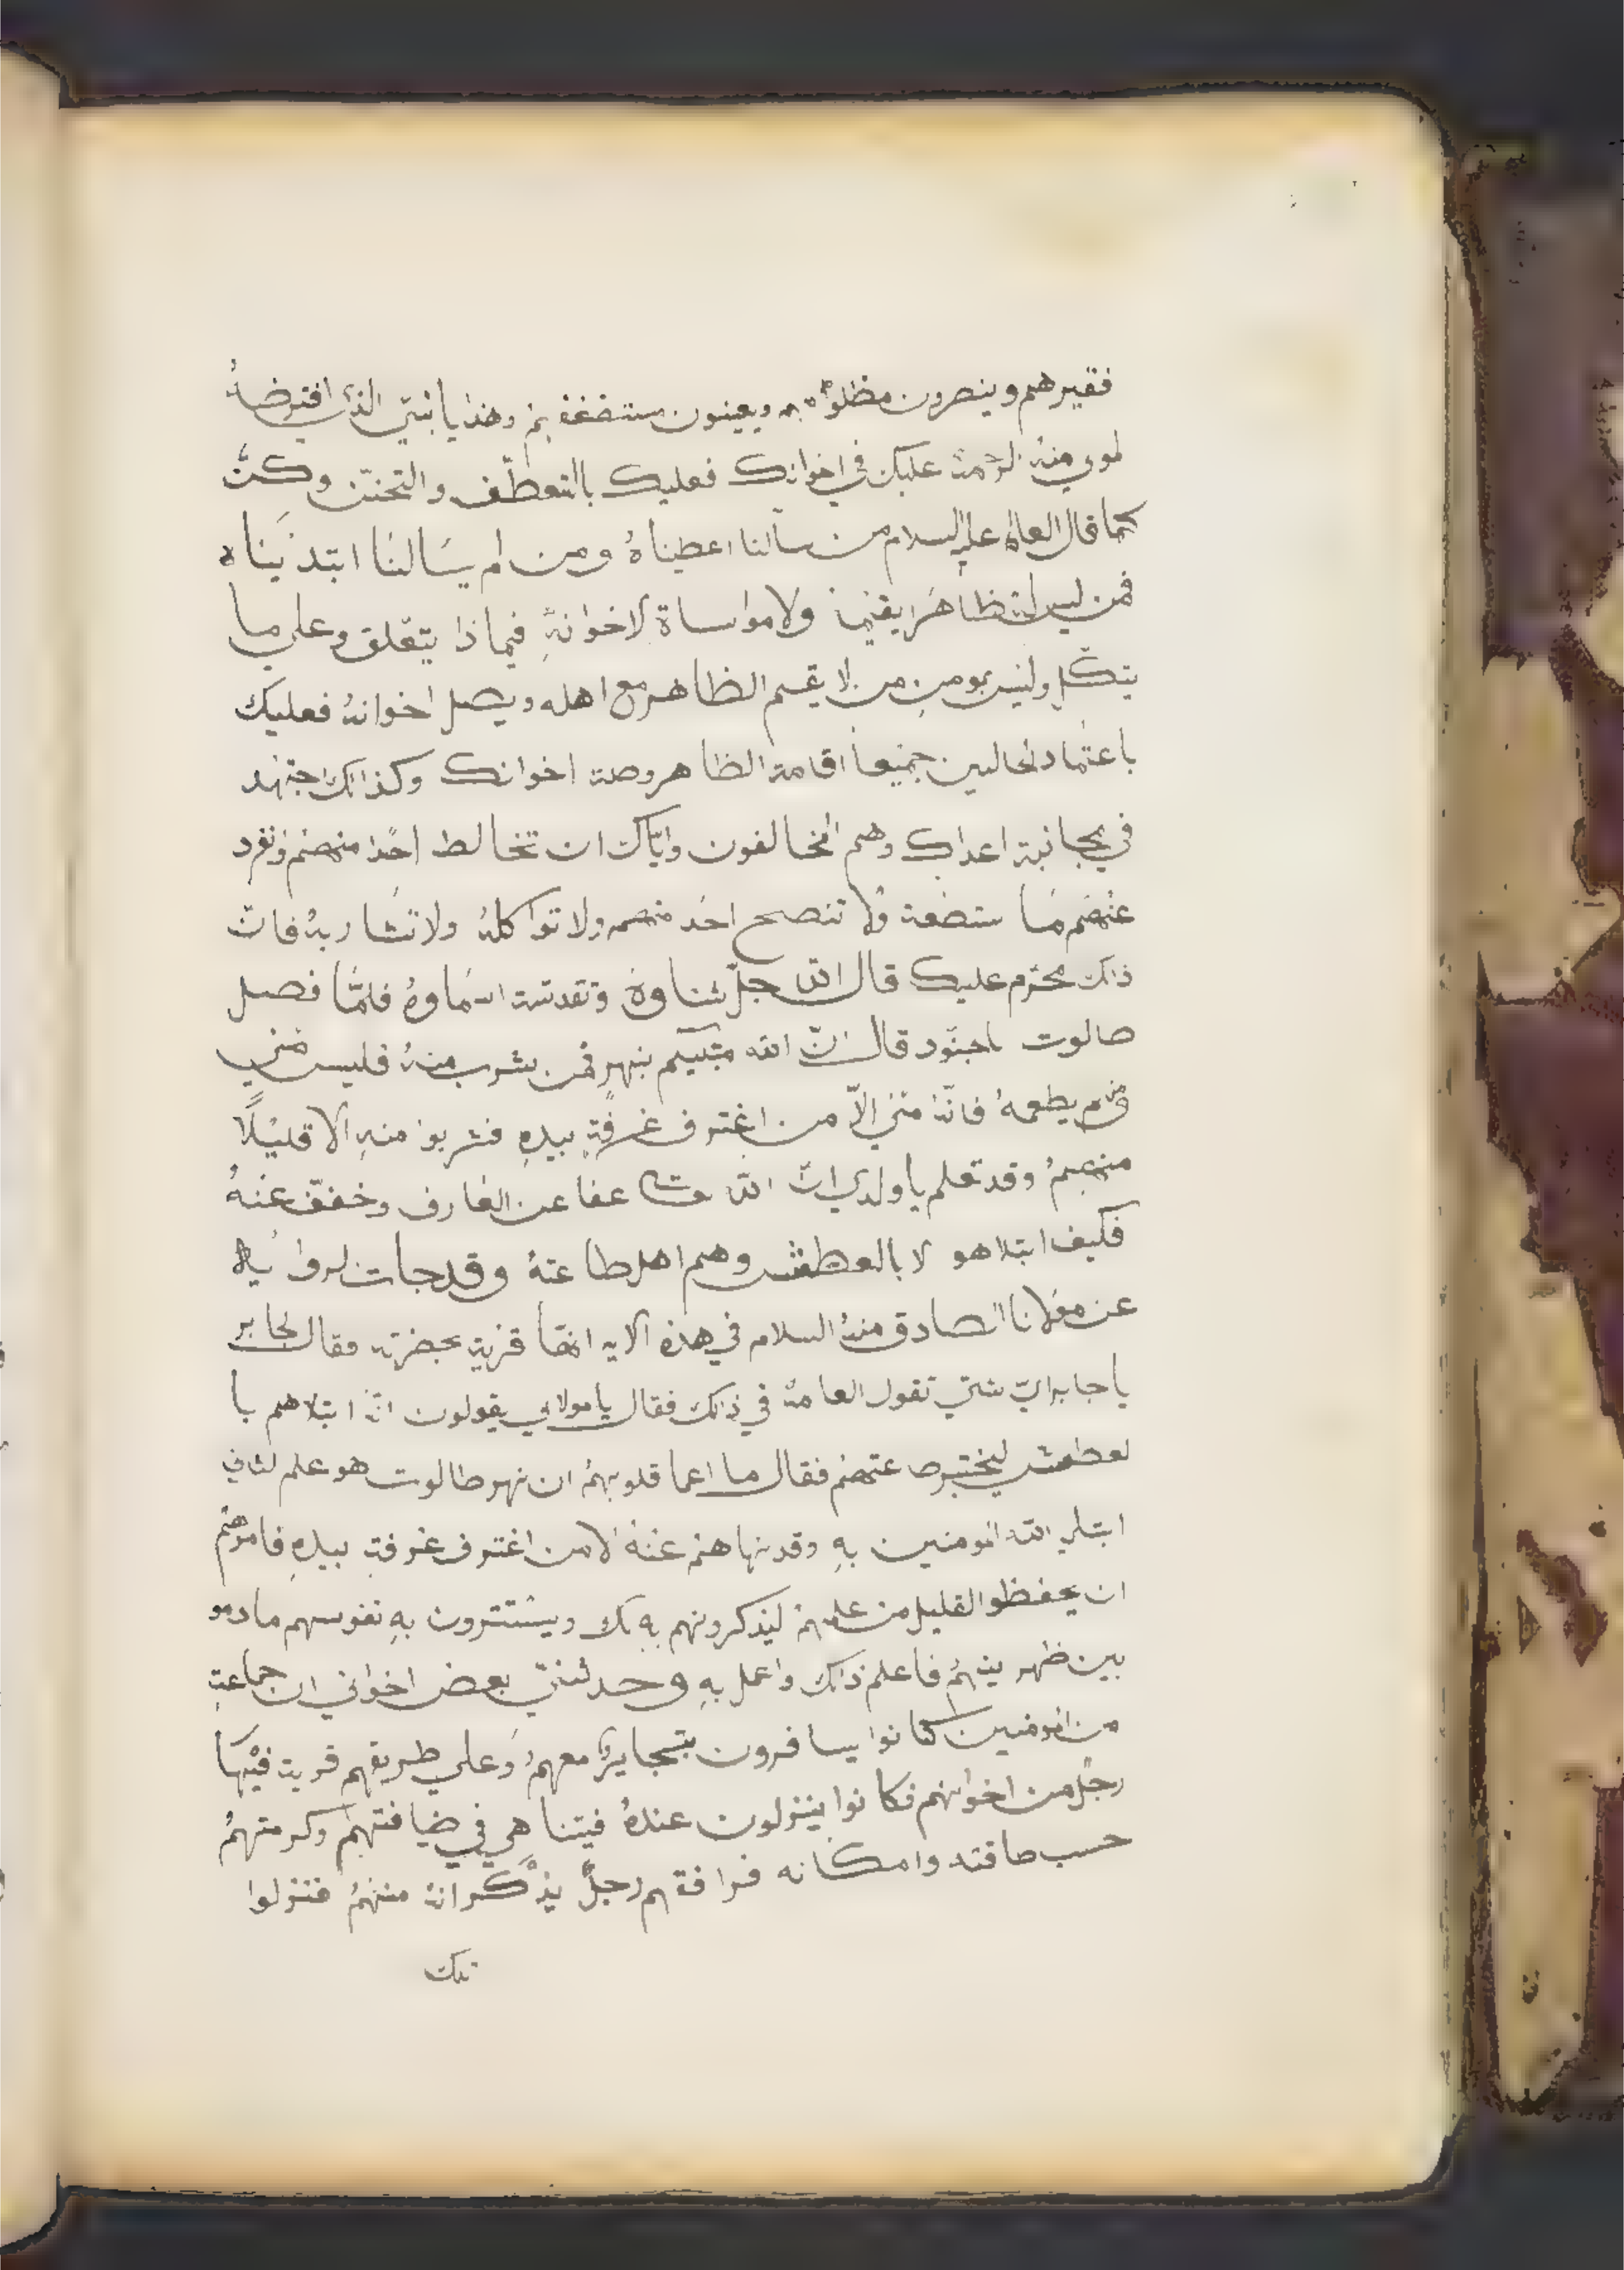 فقيرهم وينصرون مظلومهم ويعينون مستضعفهم وهذا يا بنيّ الذي افترضهُ
لموي منهُ الرحمة عليك في اخوانك فعليك بالتعطّف والتحنّن وكنّ
كما قال العالم عليه السلام من سالنا اعطيناهُ ومن لم يسَالنَا ابتدَينَاه
فمن ليس لهُ ظاهَر يقيمهُ ولا مواساة لاخوانهِ فبماذا يتعّلق وعلي ما
يتكّل وليس بمومن من لا يقيم الظاهر مع اهله ويصل اخوانهُ فعليك
باعتماد الحالين جميعاً اقامة الظاهر وصلة اخوانك وكذالك اجتهد
في مجانبة اعداك وهم المخالفون وايّاك ان تخالط احدًا منهم وتفرد
عنهم مَا ستطعة ولا تنصح احَد منهم ولا تواكلهُ ولا تشَاربهُ فانّ
ذالك محّرم عليك قال اللّه جلّ ثناوهُ وتقدست اسَماوهُ فلمَّا فصل
طالوت باجنّود قال انّ اللّه مبتليكم بنهرٍ فمن شرب منهُ فليس منّي
ومن لم يطعمهُ فانّهُ منّي الاّ من اغترف غرفةٍ بيدهِ فشربوا منهِ الا قليلًا
منهمُ وقد تعلم يا ولدي انّ اللّه عفا عن الغارف وخفّف عنهُ
فكيف ابتلا هو لا بالعطش وهم اهل طاعتهُ وقد جات الروايه
عن مولانا الصادق منهُ السلام في هذه الايه انهّا قريت بحضرته فقال لجابر
يا جابر ايّ شيّ تقول العامهُ في ذالك فقال يا مولاي يقولون انّهُ ابتلاهم با
لعطش ليختبر طاعتهم فقال ما اعما قلوبهمُ ان نهر طالوت هو علم الثاني
ابتلي اللّه المومنين بهِ وقد نهاهم عنهُ الا من اغترف غرفةٍ بيدهِ فامرهم
ان يحفظو القليل من علمهمُ ليذكرونهم بهِ ويستترون بهِ نفوسهم ما دامو
بين ظهرينهمُ فاعلم ذالك واعمل بهِ وحدثنيّ بعض اخواني ان جماعة
من المومنين كانوا يسافرون بتجايرة معهمُ وَعلي طريقهم قرية فيَها
رجُل من اخوانهم فكانوا ينزلون عندهُ فبينا هي في ضيافتهم وكرمتهمُ
حسب طاقته وامكانه فرافقهم رجلٌ يذّكر انهُ منهمُ فنزلوا